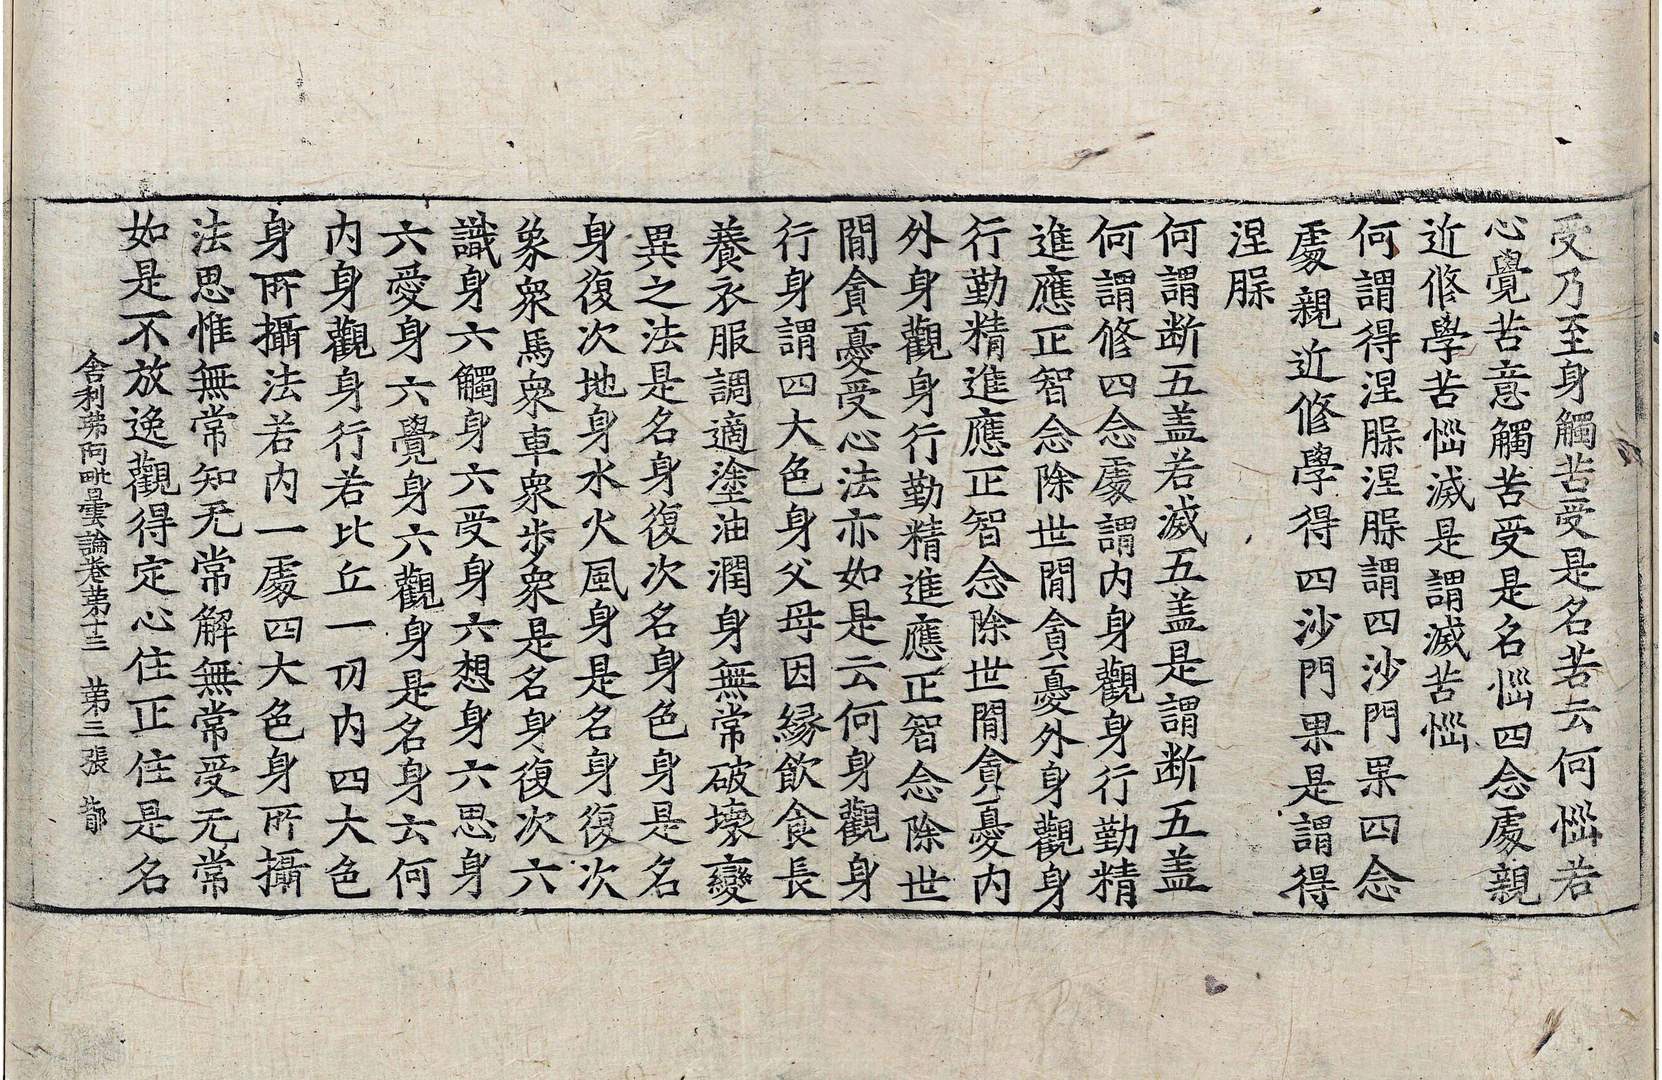 受乃至身觸苦受是名苦云何惱若
心覺苦意觸苦受是名惱四念處親
近修學苦惱滅是謂滅苦惱
何謂得涅槃涅槃謂四沙門果四念
處親近修學得四沙門果是謂得
涅槃
何謂断五盖若滅五盖是謂断五盖
何謂修四念處謂內身觀身行勤精
進應正智念除世間貪憂外身觀身
行勤精進應正智念除世間貪憂內
外身觀身行勤精進應正智念除世
間貪憂受心法亦如是云何身觀身
行身謂四大色身父母因緣飲食長
養衣服調適塗油潤身無常破壞變
異之法是名身復次名身色身是名
身復次地身水火風身是名身復次
象衆馬衆車衆步衆是名身復次六
識身六觸身六受身六想身六思身
六愛身六覺身六觀身是名身云何
內身觀身行若比丘一切內四大色
身所攝法若內一處四大色身所攝
法思惟無常知无常解無常受无常
如是不放逸觀得定心住正住是名
舍利弗阿毗曇論卷第十三 第三張